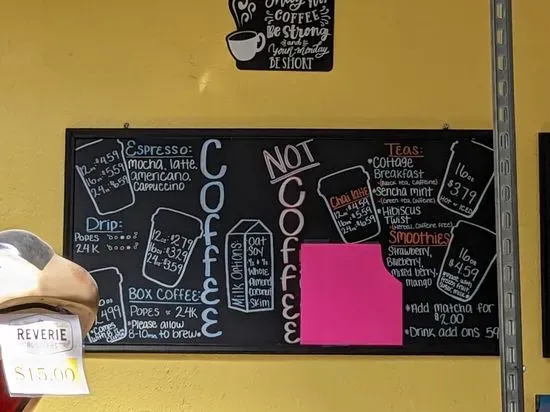 COFFEE
Be Strong
and
Your Monday
BE SHORT
Espresso:
mocha, latte,
americano,
cappuccino
12oz $4.59
16oz $5.59
24oz $6.59
Drip:
Popes
24K
12oz $2.79
16oz $3.29
24oz $3.59
BOX COFFEE:
Popes = 24K
*Please allow
8-10 mins to brew*
COFFEE
Milk Options:
Oat
Soy
Whole
Almond
Coconut
Skim
NOT
COFFEE
Chai latte
12oz 4.59
16oz 5.59
24oz 6.59
Teas:
*Cottage
Breakfast
(Black tea, caffeine)
*Sencha mint
(Green tea, caffeine)
*Hibiscus
Twist
(Herbal, caffeine free)
16oz
$3.79
HOT or ICED
Smoothies
Strawberry,
Blueberry,
mixed berry,
mango
16oz
$4.59
made with
fresh fruit
*Add matcha for
$2.00
*Drink add ons 59
REVERIE
$15.00